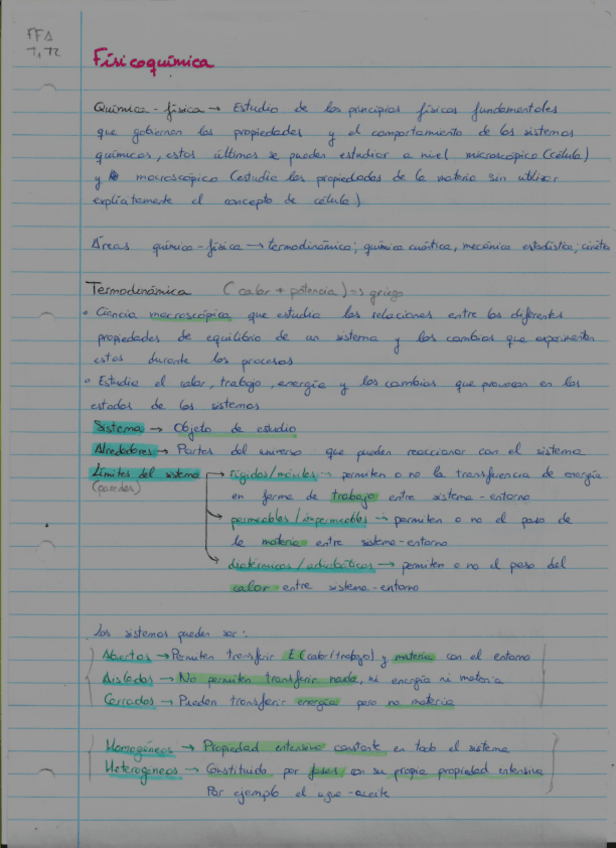 FFA
T1, T2
Físicoquímica
Química-física → Estudio de los principios físicos fundamentales
que gobiernan las propiedades y el comportamiento de los sistemas
químicos, estos últimos se pueden estudiar a nivel microscópico (célula)
y macroscópico (estudia las propiedades de la materia sin utilizar
explícitamente el concepto de célula)
Áreas química-física → termodinámica; química cuántica, mecánica estadística; cinética
Termodinámica (calor + potencia) → griego
• Ciencia macroscópica que estudia las relaciones entre las diferentes
propiedades de equilibrio de un sistema y los cambios que experimentan
estas durante los procesos
• Estudia el calor, trabajo, energía y los cambios que provocan en los
estados de los sistemas
Sistema → Objeto de estudio
Alrededores → Partes del universo que pueden reaccionar con el sistema
Límites del sistema → rígidos/móviles → permiten o no la transferencia de energía
(paredes)
en forma de trabajo entre sistema-entorno
→ permeables/impermeables → permiten o no el paso de
la materia entre sistema-entorno
→ diatérmicos/adiabáticos → permiten o no el paso del
calor entre sistema-entorno
Los sistemas pueden ser:
Abiertos → Permiten transferir E (calor/trabajo) y materia con el entorno
Aislados → No permiten transferir nada, ni energía ni materia
Cerrados → Pueden transferir energía pero no materia
Homogéneos → Propiedad intensiva constante en todo el sistema
Heterogéneos → Constituido por fases con su propia propiedad intensiva
Por ejemplo el agua-aceite